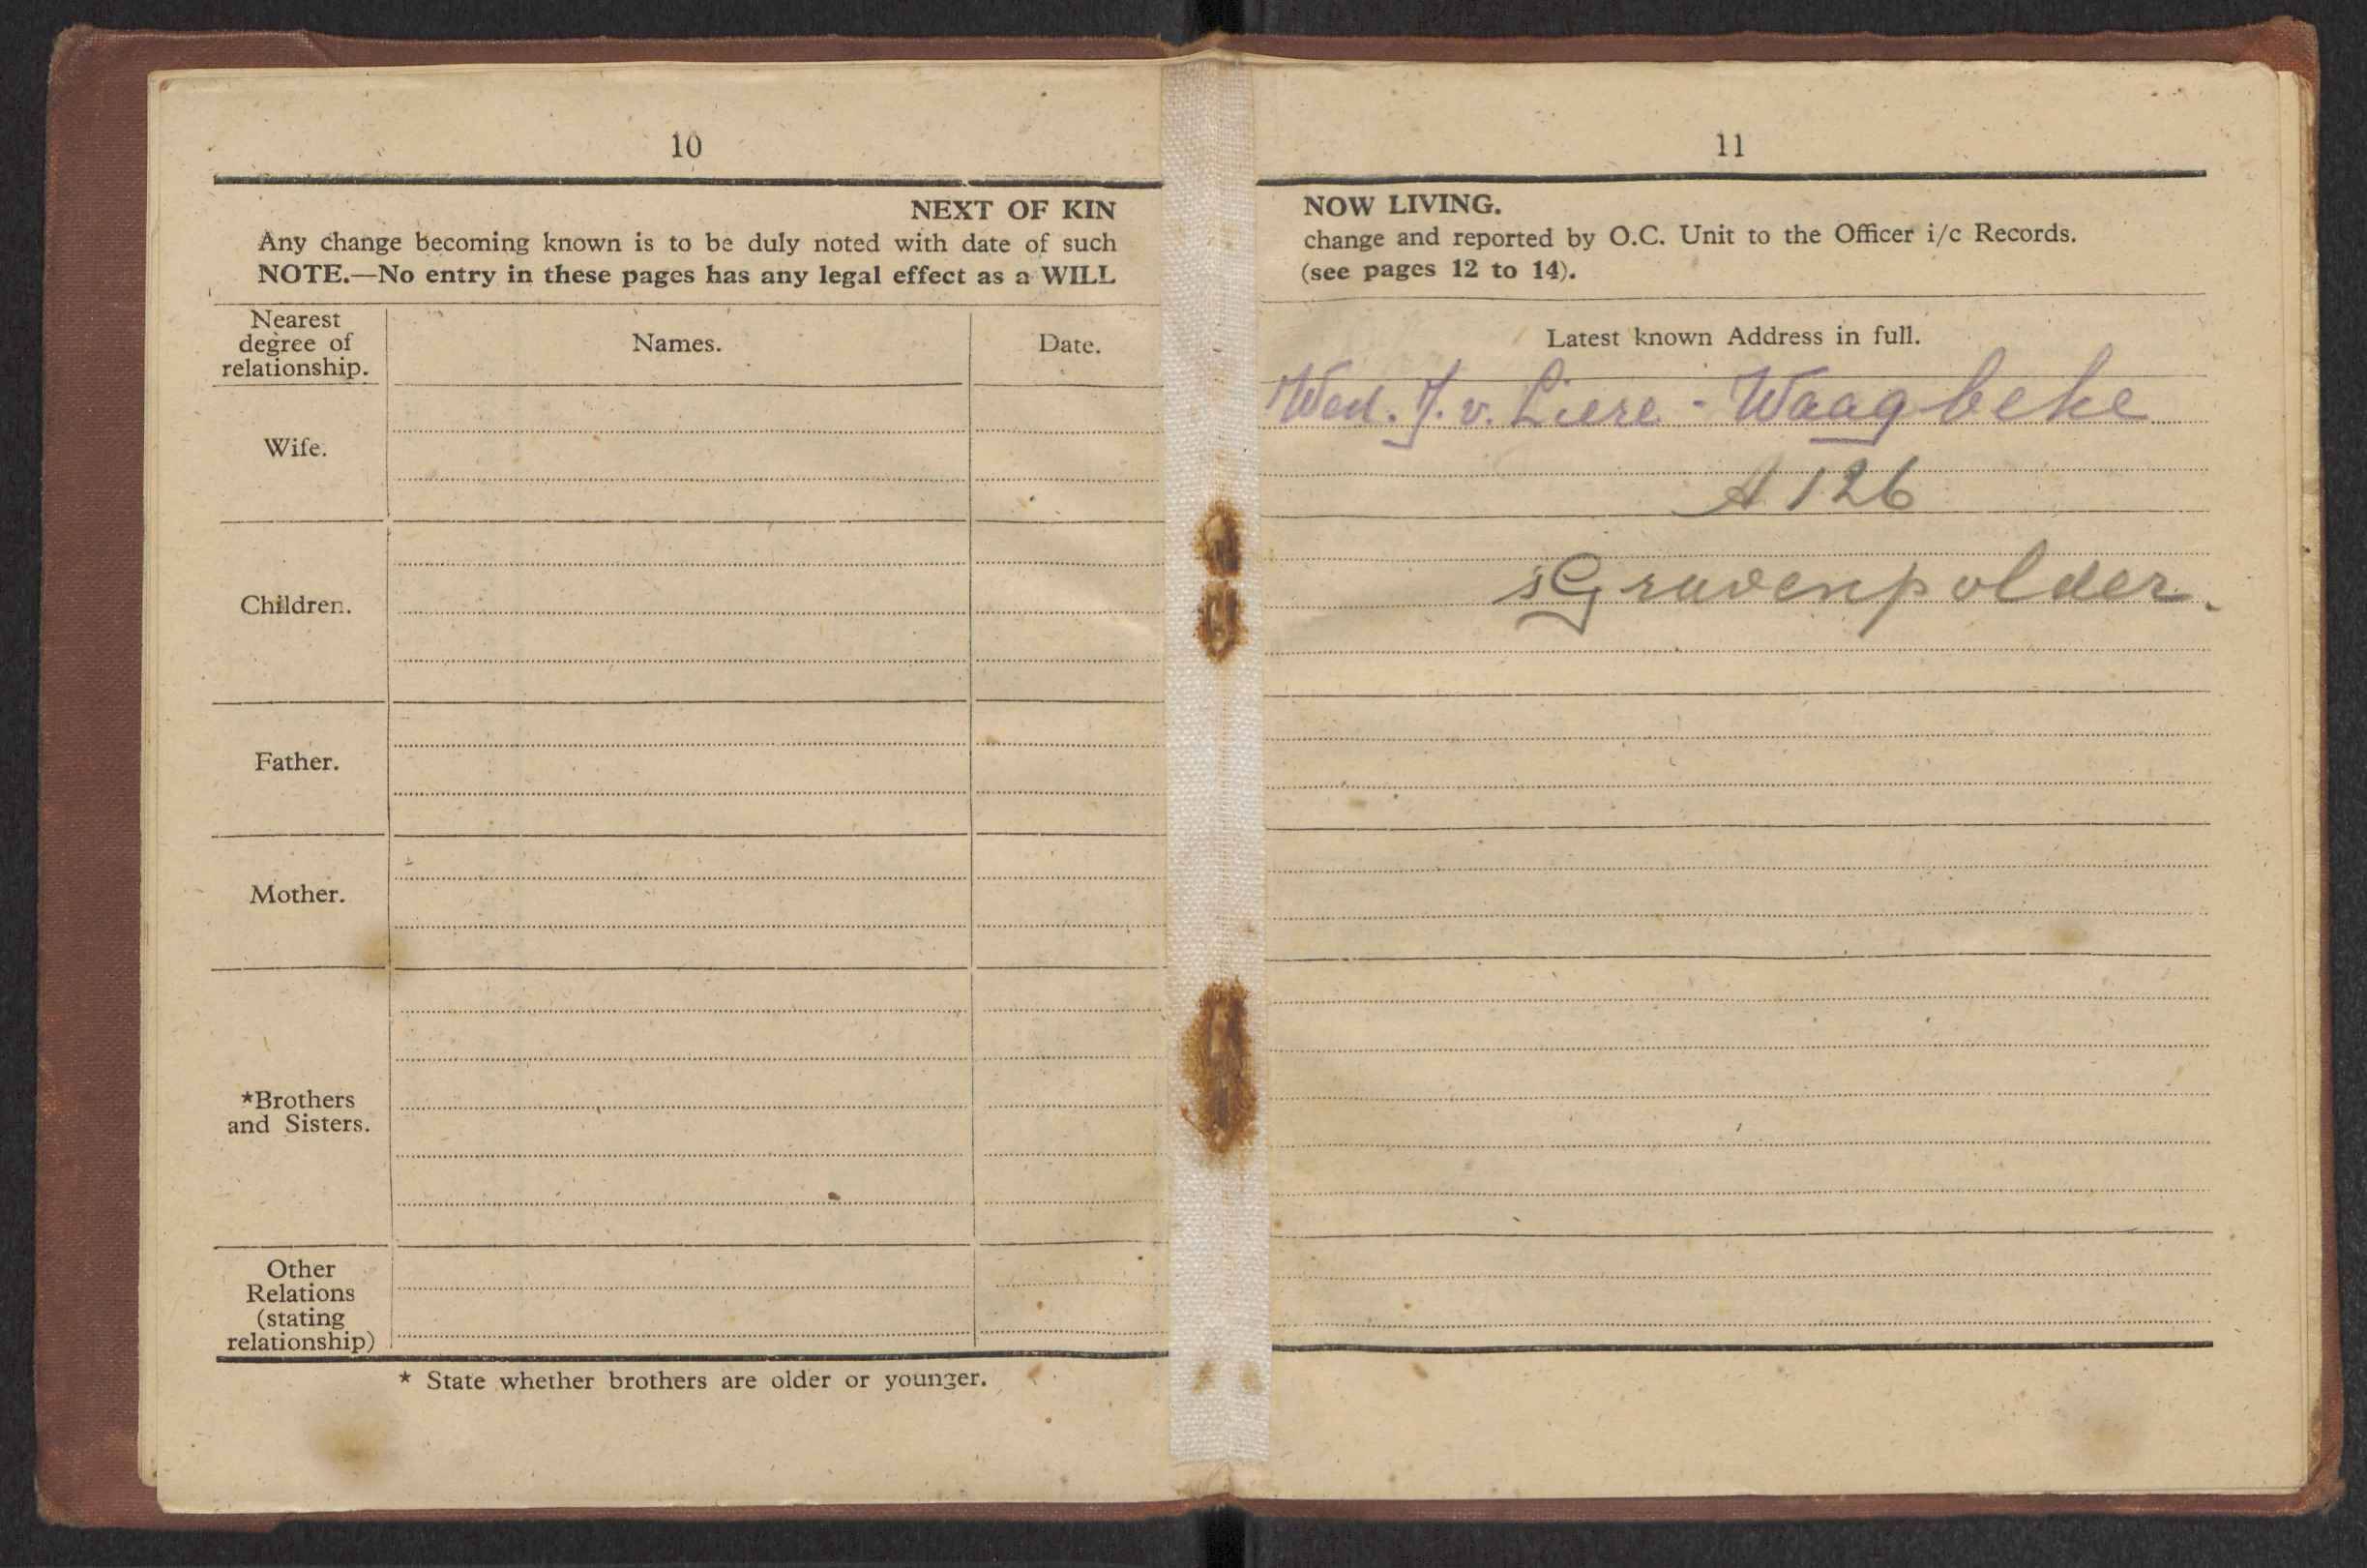 10
NEXT OF KIN
Any change becoming known is to be duly noted with date of such
NOTE.—No entry in these pages has any legal effect as a WILL
Nearest
degree of
relationship.
Names.
Date.
Wife.
Children.
Father.
Mother.
*Brothers
and Sisters.
Other
Relations
(stating
relationship)
* State whether brothers are older or younger.
11
NOW LIVING.
change and reported by O.C. Unit to the Officer i/c Records.
(see pages 12 to 14).
Latest known Address in full.
Wed. J. v. Liere - Waagbeke
A 126
sGravenpolder.